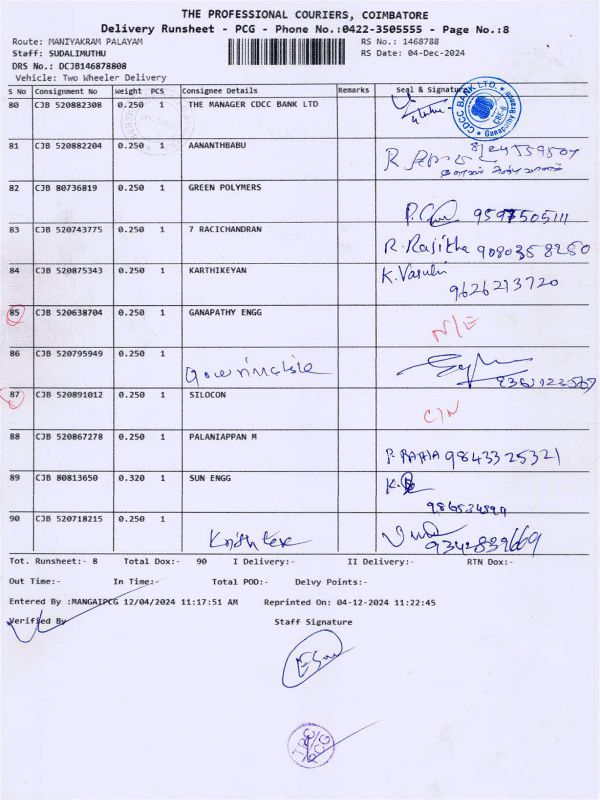 THE PROFESSIONAL COURIERS, COIMBATORE
Delivery Runsheet - PCG - Phone No.:0422-3505555 - Page No.:8
Route: MANIYAKRAM PALAYAM
RS No.: 1468788
Staff: SUDALIMUTHU
RS Date: 04-Dec-2024
DRS No.: DCJB146878808
Vehicle: Two Wheeler Delivery
S No Consignment No Weight PCS Consignee Details Remarks Seal & Signature
80 CJB 520882308 0.250 1 THE MANAGER CDCC BANK LTD
CDCC BANK LTD. CBE-6 Ganapathy
81 CJB 520882204 0.250 1 AANANTHBABU
82 CJB 80736819 0.250 1 GREEN POLYMERS
9597505111
83 CJB 520743775 0.250 1 7 RACICHANDRAN R. Rajitha 9080358280
84 CJB 520875343 0.250 1 KARTHIKEYAN K. Vasuki
9626213720
85 CJB 520638704 0.250 1 GANAPATHY ENGG N/E
86 CJB 520795949 0.250 1
87 CJB 520891012 0.250 1 SILOCON C/N
88 CJB 520867278 0.250 1 PALANIAPPAN M 9843325321
89 CJB 80813650 0.320 1 SUN ENGG
90 CJB 520718215 0.250 1
9342839669
Tot. Runsheet:- 8 Total Dox:- 90 I Delivery:- II Delivery:- RTN Dox:-
Out Time:- In Time:- Total POD:- Delvy Points:-
Entered By :MANGAIPCG 12/04/2024 11:17:51 AM Reprinted On: 04-12-2024 11:22:45
Verified By Staff Signature
TPC
PCG